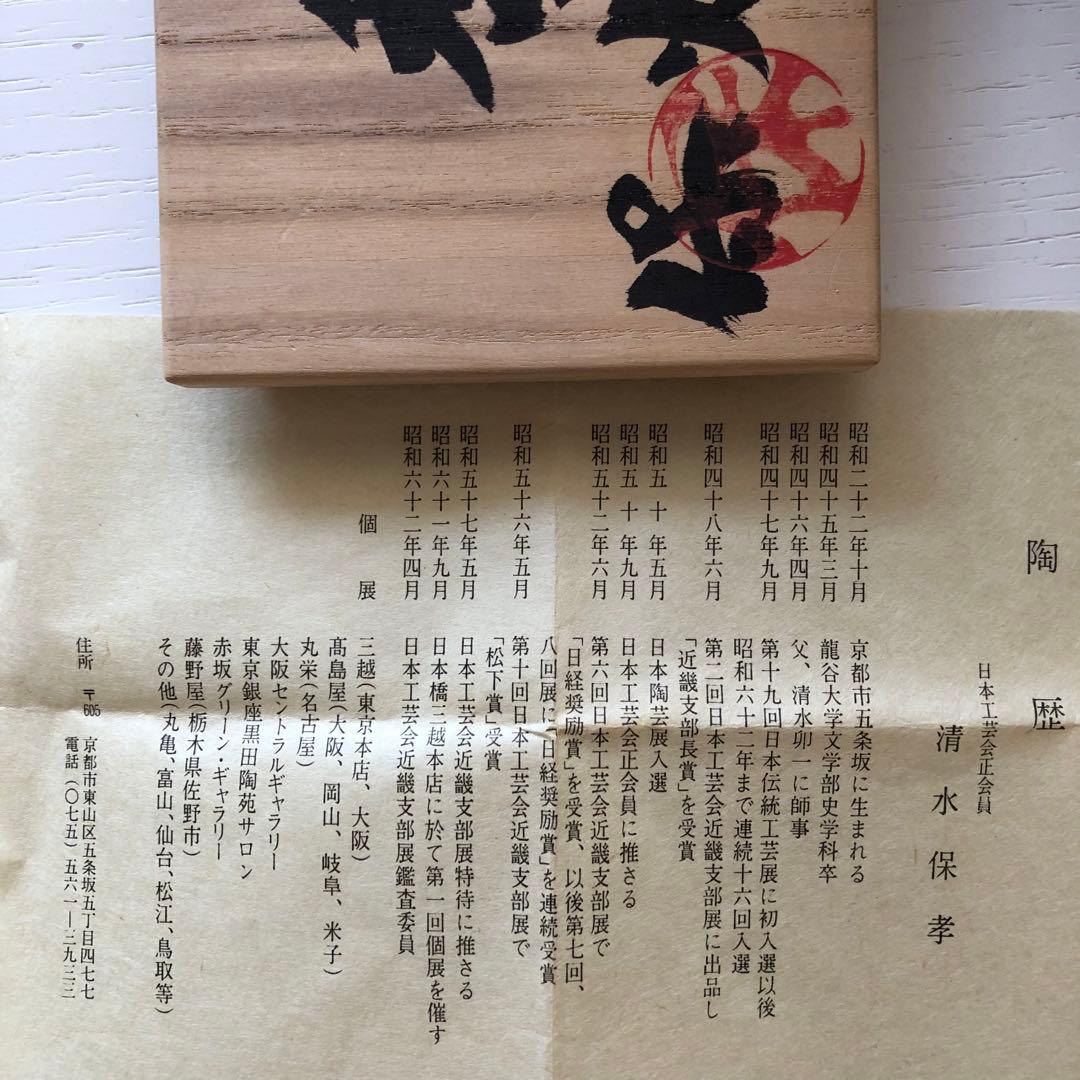 陶歴
日本工芸会正会員
清水保孝
昭和二十二年十月 京都市五条坂に生まれる
昭和四十五年三月 龍谷大学文学部史学科卒
昭和四十六年四月 父、清水卯一に師事
昭和四十七年九月 第十九回日本伝統工芸展に初入選以後
昭和六十二年まで連続十六回入選
昭和四十八年六月 第二回日本工芸会近畿支部展に出品し
「近畿支部長賞」を受賞
昭和五十年五月 日本陶芸展入選
昭和五十年九月 日本工芸会正会員に推さる
昭和五十二年六月 第六回日本工芸会近畿支部展で
「日経奨励賞」を受賞、以後第七回、
八回展に「日経奨励賞」を連続受賞
昭和五十六年五月 第十回日本工芸会近畿支部展で
「松下賞」受賞
昭和五十七年五月 日本工芸会近畿支部展特待に推さる
昭和六十一年九月 日本橋三越本店に於て第一回個展を催す
昭和六十二年四月 日本工芸会近畿支部展鑑査委員
個展 三越(東京本店、大阪)
髙島屋(大阪、岡山、岐阜、米子)
丸栄(名古屋)
大阪セントラルギャラリー
東京銀座黒田陶苑サロン
赤坂グリーン・ギャラリー
藤野屋(栃木県佐野市)
その他(丸亀、富山、仙台、松江、鳥取等)
住所 〒605 京都市東山区五条坂五丁目四七七
電話(〇七五)五六一―三九三三